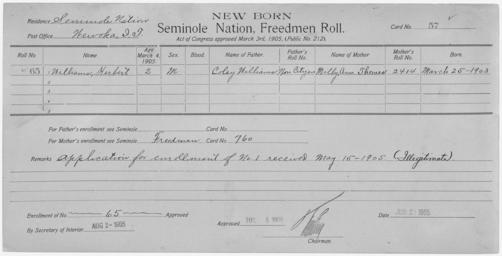 NEW BORN
Residence Seminole Nation
Seminole Nation, Freedmen Roll.
Card No. 57
Post Office Wewoka, I.T.
Act of Congress approved March 3rd, 1905, (Public No. 212).
Roll No. Name Age March 4, 1905. Sex. Blood. Name of Father. Father's Roll No. Name of Mother Mother's Roll No. Born.
65 1 Williams, Herbert 2 M Coley Williams Non Citizen Milly Ann Thomas 2414 March 25-1903
For Father's enrollment see Seminole Card No.
For Mother's enrollment see Seminole Freedman Card No. 760
Remarks Application for enrollment of No. 1 received May 15-1905 (Illegitimate)
Enrollment of No. 65 Approved
By Secretary of Interior AUG 2-1905
Approved 1905
Chairman
Date 1905